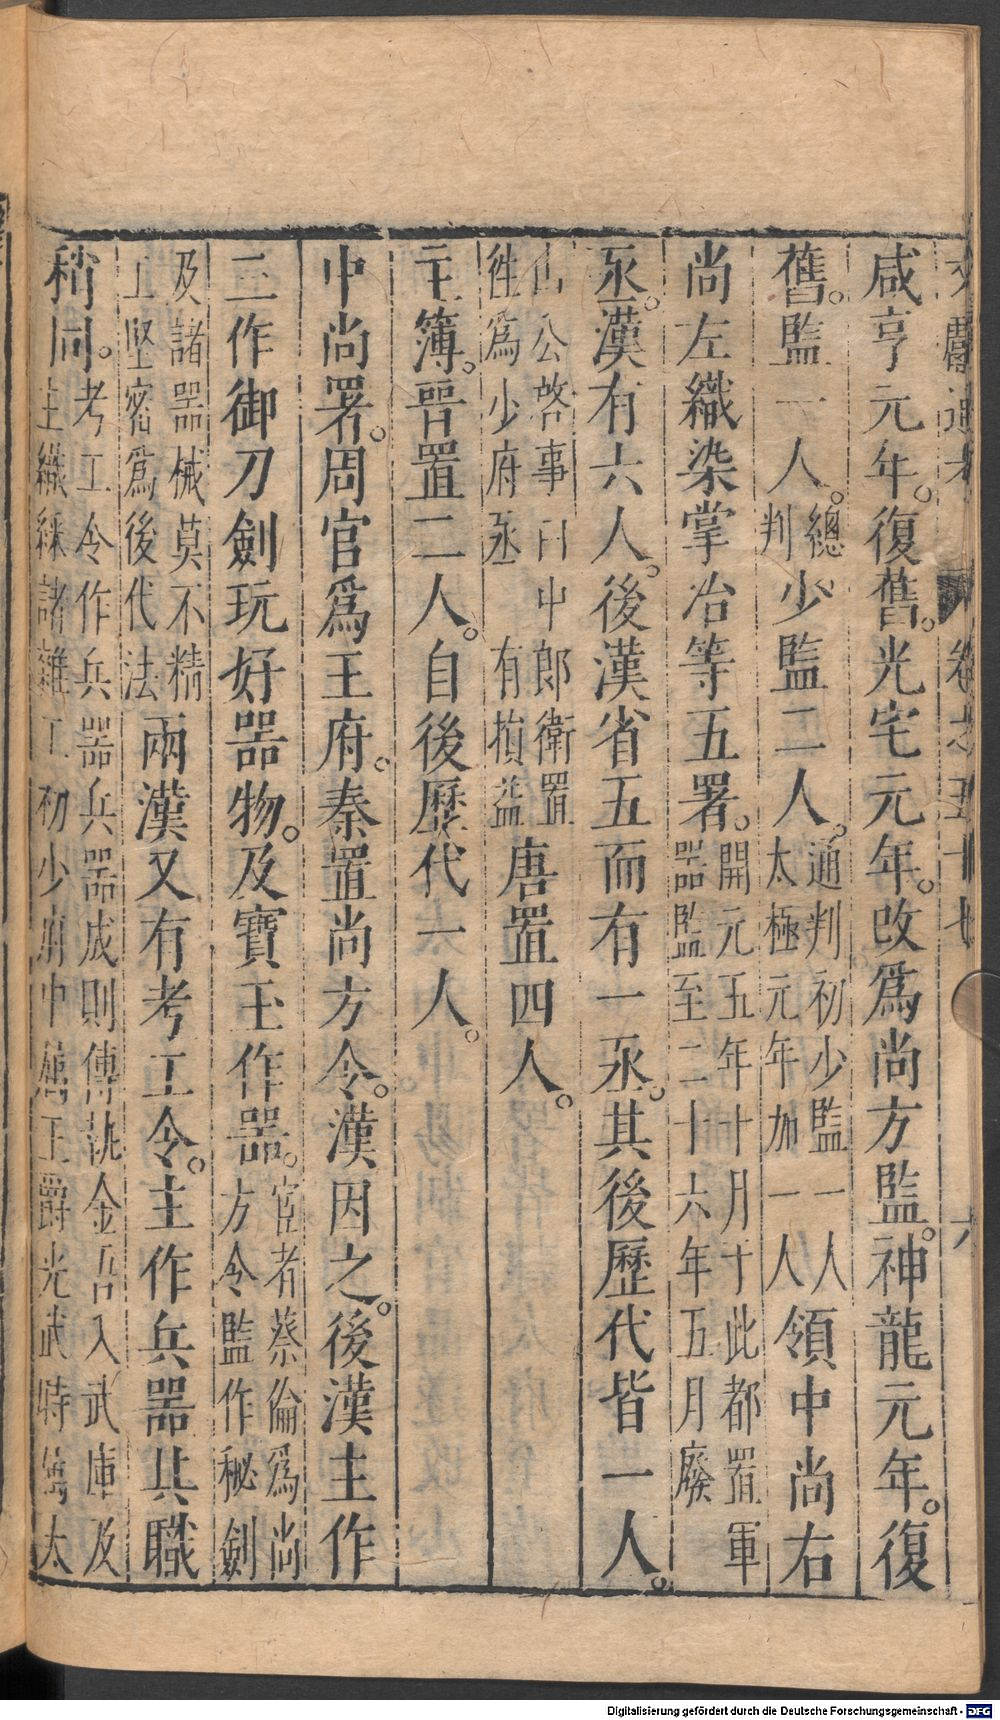 文獻通考 卷之五十七 六
咸亨元年。復舊。光宅元年。改爲尚方監。神龍元年。復
舊。監一人。總判少監二人。通判初少監一人太極元年加一人領中尚右
尚左織染掌冶等五署。開元五年十月十此都置軍器監至二十六年五月廢
丞。漢有六人。後漢省五而有一丞。其後歷代皆一人。
山公啓事曰中郎衛置往爲少府丞有損益唐置四人。
主簿。晉置二人。自後歷代一人。
中尚署。周官爲王府。秦置尚方令。漢因之。後漢主作
三作御刀劍玩好器物。及寶玉作器。宦者蔡倫爲尚方令監作秘劍
及諸器械莫不精工堅密爲後代法兩漢又有考工令。主作兵器其職
稍同。考工令作兵器兵器成則傳執金吾入武庫及主織綵諸雜工初少府中屬王爵光武時屬太
Digitalisierung gefördert durch die Deutsche Forschungsgemeinschaft - DFG